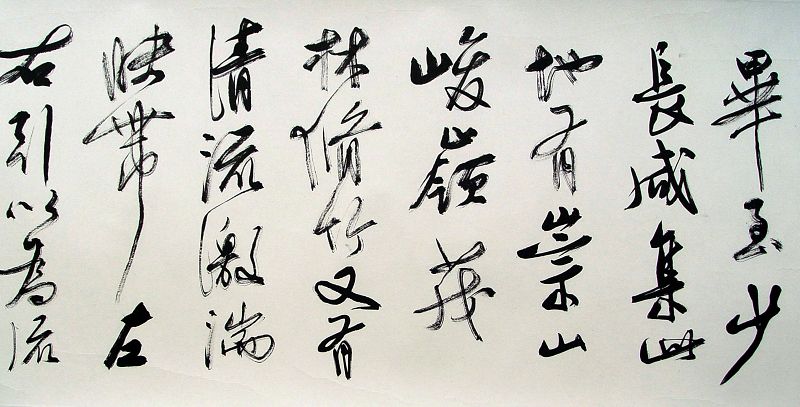 畢至少
長咸集此
地有崇山
峻嶺茂
林脩竹又有
清流激湍
映帶左
右引以為流